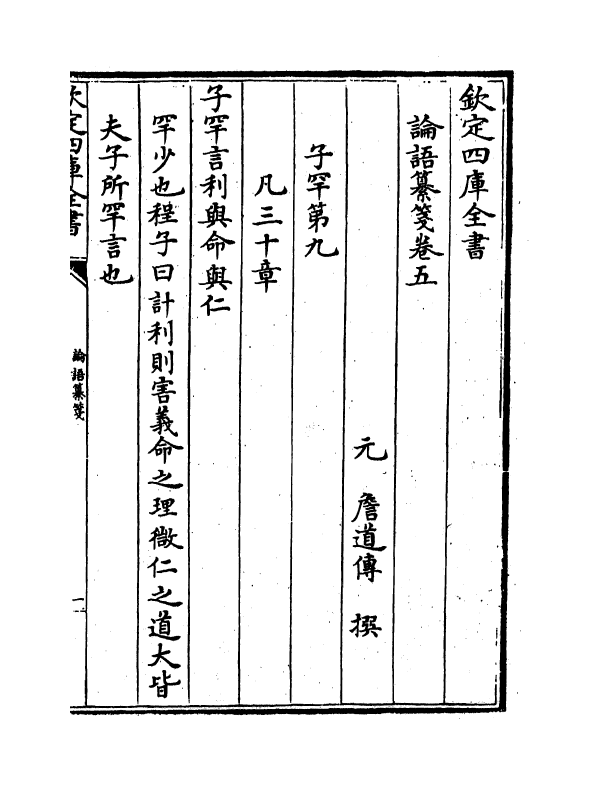 欽定四庫全書
論語纂箋卷五
元 詹道傳 撰
子罕第九
凡三十章
子罕言利與命與仁
罕少也程子曰計利則害義命之理微仁之道大皆
夫子所罕言也
欽定四庫全書
論語纂箋
一